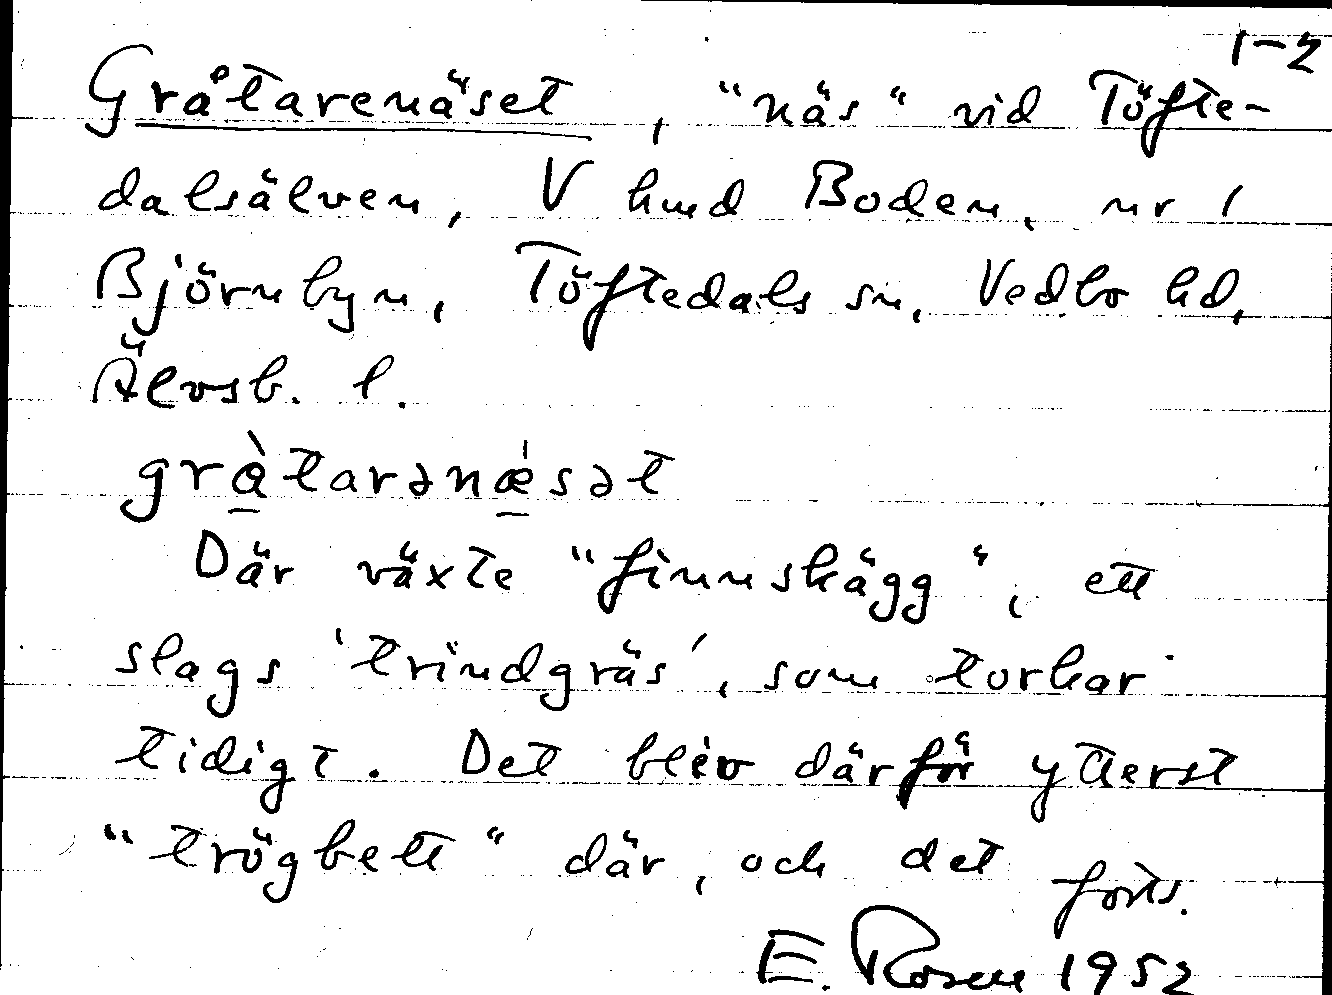 1-2
Gråtarenäset, "näs" vid Töfte-
dalsälven, V hmd Boden, nr 1
Björnbyn, Töftedals sn, Vedbo hd,
Älvsb. l.
grå̀tarənǽsət
Där växte "finnskägg", ett
slags 'trindgräs', som torkar
tidigt. Det blev därför ytterst
"trögbett" där, och det
forts.
E. Rosen 1952